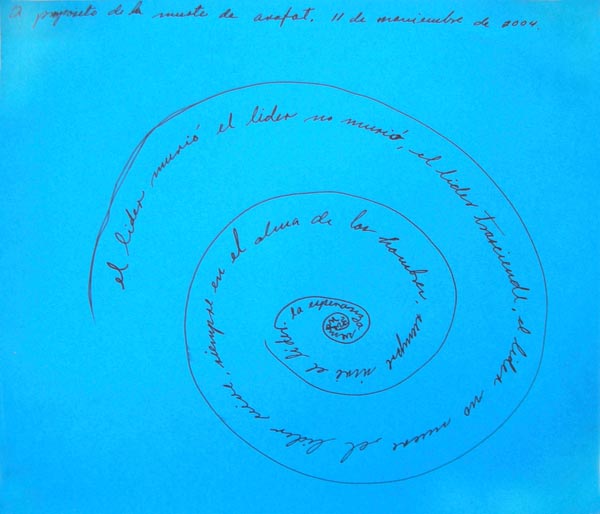 A proposito de la muerte de arafat. 11 de noviembre de 2004.
el lider murió el lider no murió, el lider trasciende, el lider no muere, el lider vive, siempre en el alma de los hombres. siempre vive el lider. la esperanza